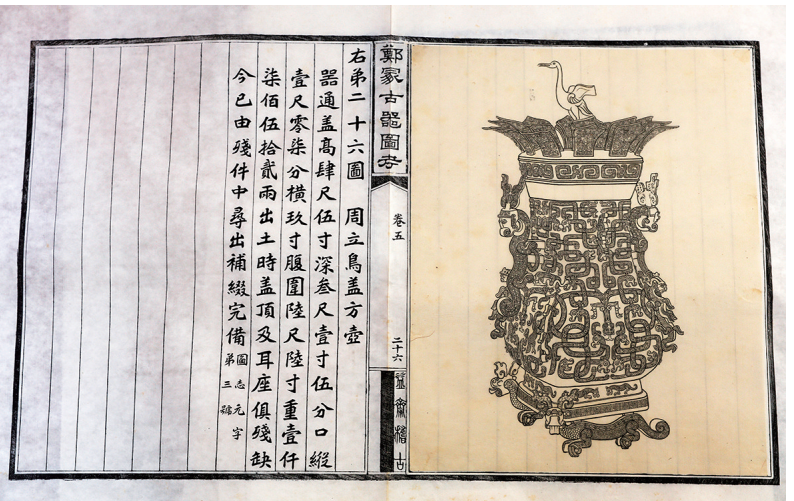 鄭冢古器圖考
卷五
二十六
右弟二十六圖　周立鳥盖方壺
器通盖高肆尺伍寸深叁尺壹寸伍分口縱
壹尺零柒分橫玖寸腹圍陸尺陸寸重壹仟
柒佰伍拾貳兩出土時盖頂及耳座俱殘缺
今已由殘件中尋出補綴完備圖志元字
弟三號